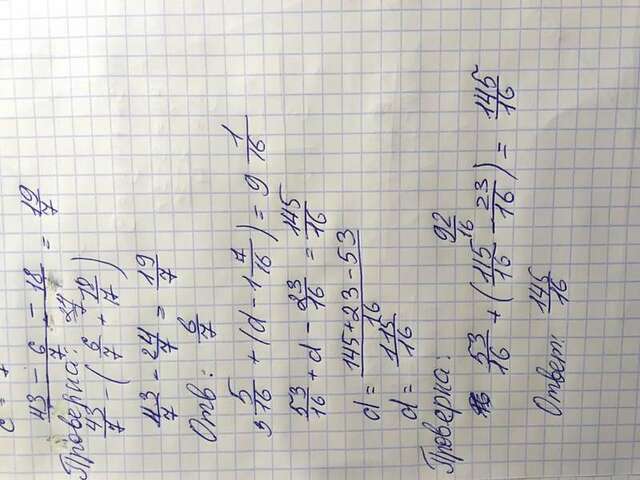 43 - 6/7 - 18 = 19/7
Проверка: 24/7
43/7 - (6/7 + 18/17)
43/7 - 24/7 = 19/7
Отв: 6/7
3 5/16 + (d - 1 7/16) = 9 1/16
53/16 + d - 23/16 = 145/16
d = 145+23-53/16
d = 115/16
Проверка: 92/16
53/16 + (115/16 - 23/16) = 145/16
Ответ: 145/16